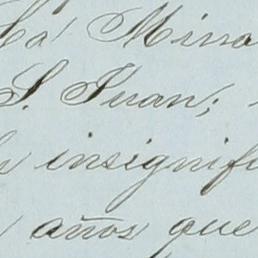 La Mina
S. Juan;
insignifi
años que